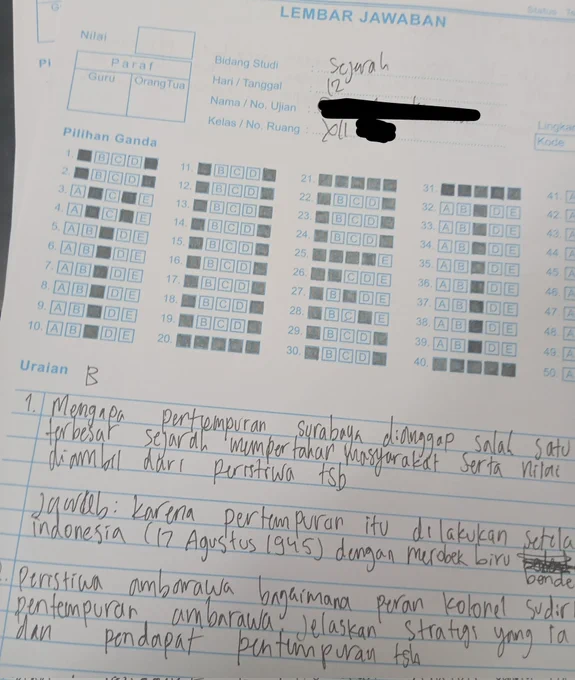 LEMBAR JAWABAN
Status
Nilai
Paraf
Guru
OrangTua
Bidang Studi : Sejarah
Hari / Tanggal : 12
Nama / No. Ujian :
Kelas / No. Ruang : XII
Kode
Pilihan Ganda
1. B C D
2. B C D
3. A C E
4. A C E
5. A B D E
6. A B D E
7. A B D E
8. A B D E
9. A B D E
10. A B D E
11. B C D
12. B C D
13. B C D
14. B C D
15. B C D
16. B C D
17. B C D
18. B C D
19. B C D
20.
21.
22. B C D
23. B C D
24. B C D
25. E
26. C D E
27. B D E
28. B C E
29. B C D
30. B C D
31.
32. A B D E
33. A B D E
34. A B D E
35. A B D E
36. A B D E
37. A B D E
38. A B D E
39. A B D E
40.
41. A
42. A
43. A
44. A
45. A
46. A
47. A
48. A
49. A
50. A
Uraian B
1. Mengapa pertempuran surabaya dianggap salah satu
terbesar sejarah mempertahan masyarakat serta nilai
diambil dari peristiwa tsb
jawab: karena pertempuran itu dilakukan setela
indonesia (17 Agustus 1945) dengan merobek biru
bende
Peristiwa ambarawa bagaimana peran kolonel sudir
pentempuran ambarawa, jelaskan strategi yang ia
dan pendapat pentempuran tsb